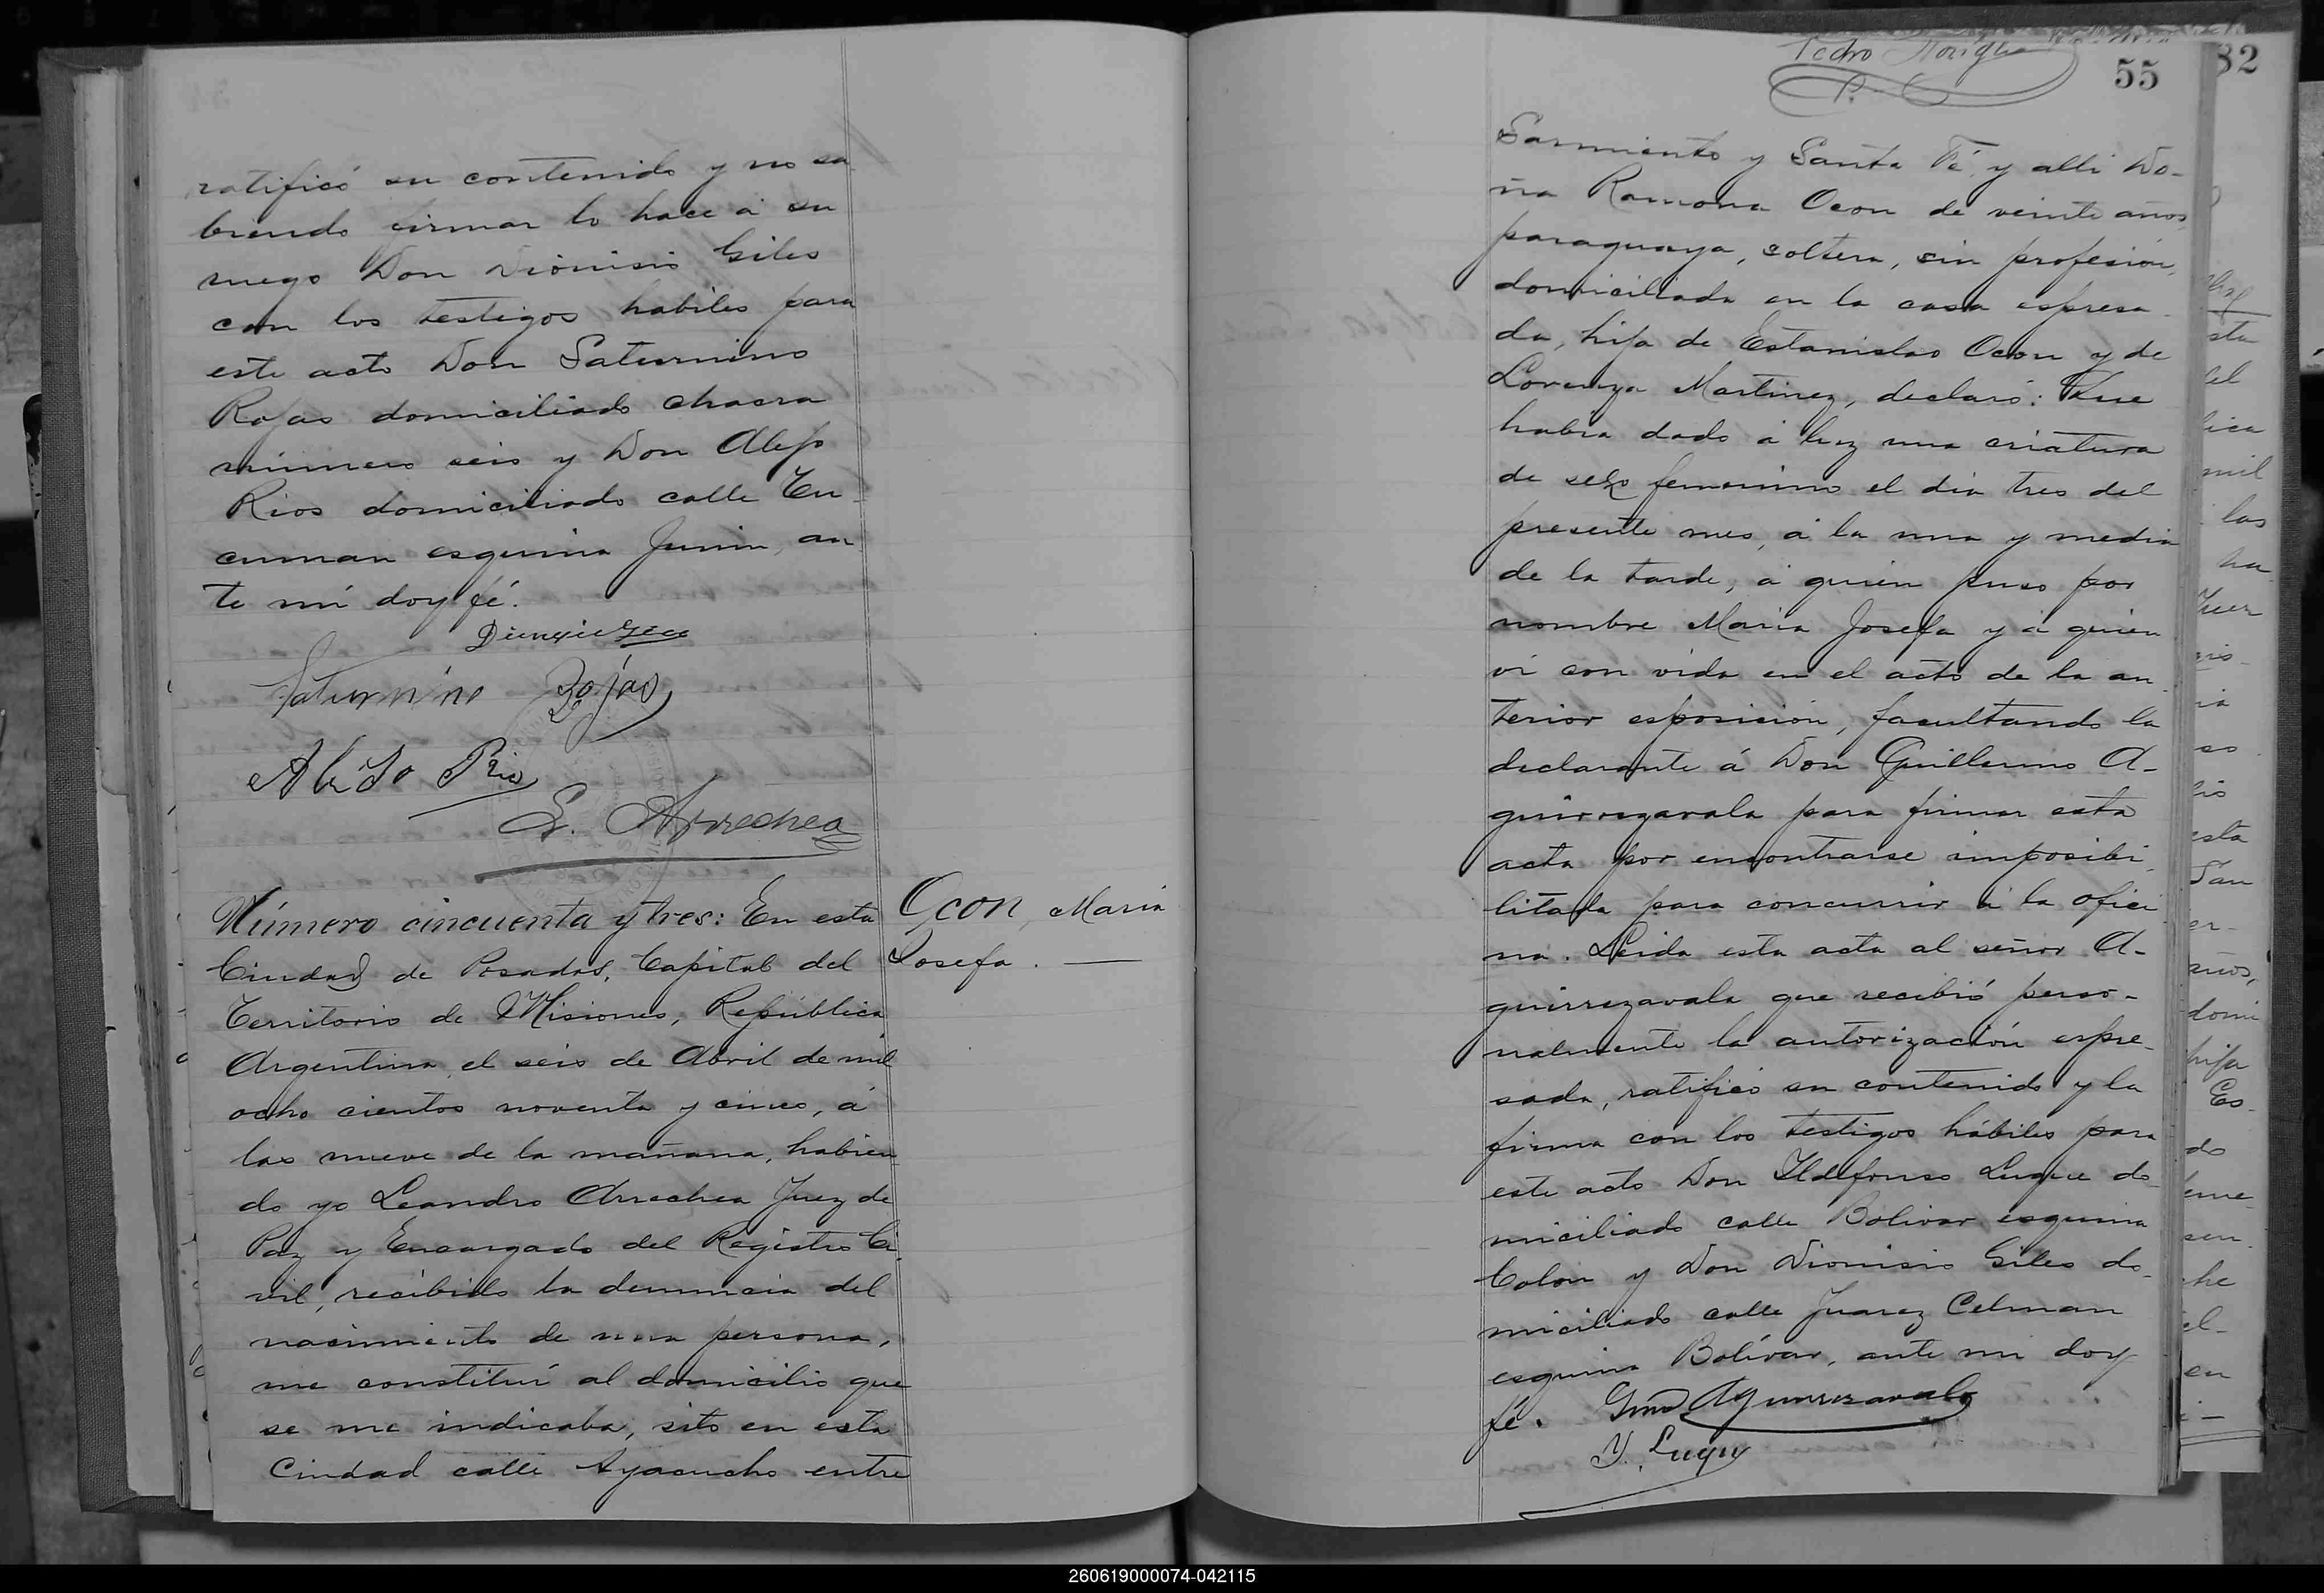 ratificó su contenido y no sa
biendo firmar lo hace á su
ruego Don Dionisio Giles
con los testigos habiles para
este acto Don Saturnino
Rojas domiciliado chacra
número seis y Don Alejo
Rios domiciliado calle Tu-
cuman esquina Junin, an
te mi doy fé.
Saturnino Rojas
Alejo Rio
L. Arrechea
Número cincuenta y tres: En esta
Ciudad de Posadas, Capital del
Territorio de Misiones, República
Argentina, el seis de Abril de mil
ocho cientos noventa y cinco, á
las nueve de la mañana, habien
do yo Leandro Arrechea Juez de
Paz y Encargado del Registro Ci
vil, recibido la denuncia del
nacimiento de una persona,
me constituí al domicilio que
se me indicaba, sito en esta
Ciudad calle Ayacucho entre
Ocon, Maria
Josefa. —
Pedro
55
82
Sarmiento y Santa Fé, y alli Do-
ña Ramona Ocon de veinte años,
paraguaya, soltera, sin profesión,
domiciliada en la casa espresa
da, hija de Estanislao Ocon y de
Lorenza Martinez, declaró: Que
habia dado á luz una criatura
de sexo femenino el dia tres del
presente mes, á la una y media
de la tarde, á quien puso por
nombre Maria Josefa y á quien
vi con vida en el acto de la an
terior esposición, facultando la
declarante á Don Guillermo A-
guirrezavala para firmar esta
acta por encontrarse imposibi
litada para concurrir á la ofici
na. Leida esta acta al señor A-
guirrezavala que recibió perso-
nalmente la autorización espre-
sada, ratificó su contenido y la
firma con los testigos hábiles para
este acto Don Ildefonso Luque do
miciliado calle Bolivar esquina
Colon y Don Dionisio Giles do-
miciliado calle Juarez Celman
esquina Bolívar, ante mi doy
fé. Gmo Aguirrezavala
Y. Luque
260619000074-042115